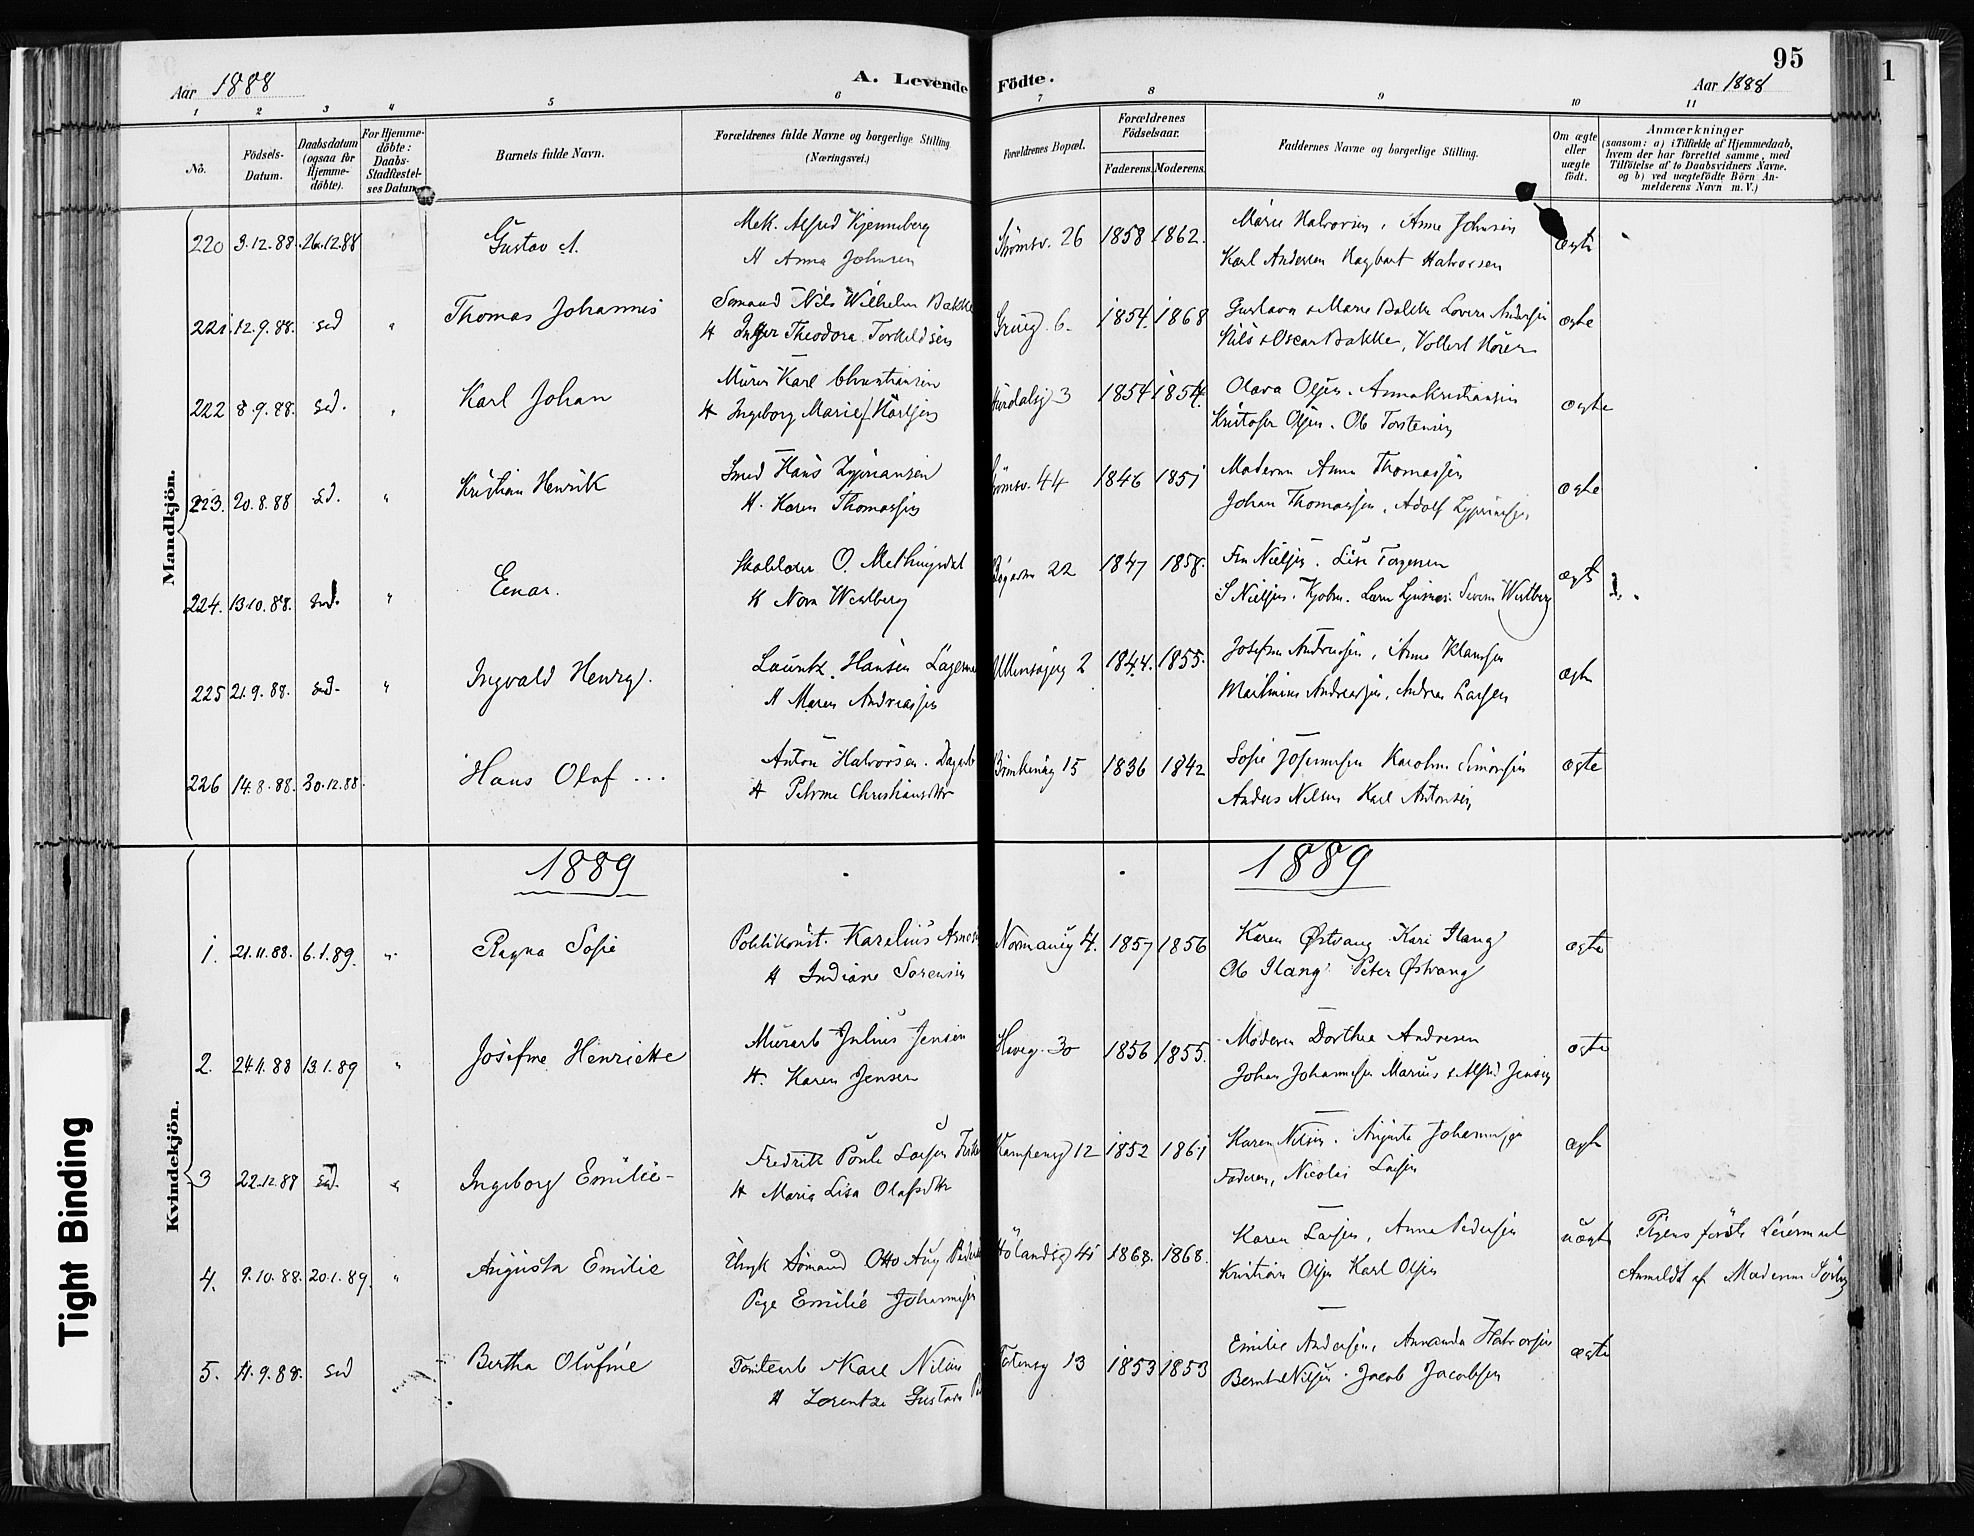 Aar 1888
A. Levende Födte.
95
Aar 1888
1
1 2 3 4 5 6 7 8 9 10 11
No.
Födsels-Datum.
Daabsdatum (ogsaa for Hjemme-döbte).
For Hjemme-döbte: Daabs-Stadfæstel-ses Datum.
Barnets fulde Navn.
Forældrenes fulde Navne og borgerlige Stilling (Næringsvei.)
Forældrenes Bopæl.
Forældrenes Födselsaar.
Faderens. Moderens.
Faddernes Navne og borgerlige Stilling.
Om ægte eller uægte födt.
Anmærkninger
(saasom: a) i Tilfælde af Hjemmedaab,
hvem der har forrettet samme, med
Tilföielse af to Daabsvidners Navne.
og b) ved uægtefödte Börn An-
melderens Navn m. V.)
Mandkjön.
220 3.12.88. 26.12.88 " Gustav A. Mek. Alfred Kjenneberg Strømsv. 26 1858 1862. Marie Halvorsen, Anna Johnsen ægte
H Anna Johnsen Karl Andersen Hagbart Halvorsen
221. 12.9.88. sed " Thomas Johannes Sømand Nils Wilhelm Bakke Grüng. 6. 1854. 1868 Gustava & Marie Bakke ægte
H Inger Theodora Torkildsen Nils & Oscar Bakke,
222 8.9.88. sed. " Karl Johan Murer Karl Christiansen Hurdalsg 3 1854 1854. Olava Olsen. Anna Kristiansen ægte
H Ingeborg Marie Kristofer Olsen. Ole Torstensen
223. 20.8.88 sd. " Kristian Henrik Smed Hans Zypriansen Strömsv. 44 1846 1851 Moderen Anna Thomassen ægte
H. Karen Thomassen Johan Thomassen, Adolf
224. 13.10.88. sed. " Einar. O. 22 1847 1858. Fru Nielsen. Lise Torgersen ægte
H Nora Westberg S Nielsen. Kjøbm. Severin Westberg
225 21.9.88. sed. " Ingvald Henry. Lauritz Hansen Ullensagerg 2 1844. 1855. Josefine Andreassen, Anna ægte
H Maren Andreassen Martinius Andreassen, Andreas Larsen
226 14.8.88. 30.12.88. Hans Olaf ... Anton Halvorsen. Dagarb 15 1836 1842 Sofie Karoline Simonsen ægte
H Petrine Christiansdtr Anders Nilsen Karl Antonsen
1889 1889
Kvindekjön.
1. 21.11.88. 6.1.89. " Ragna Sofie Politikonst. Karelius Normanng 4. 1857 1856 Karen Østvang Kari Stang ægte
H Indiane Sorensen Ole Stang Peter Østvang
2. 24.11.88 13.1.89 " Josefine Henriette Murarb Julius Jensen Haveg. 30 1856 1855. Moderen Dorthea Andresen ægte
H. Karen Jensen Johan Johannesen Marius & Alfred Jensen
3 22.12.88 sd. " Ingeborg Emilie Fredrik Larsen Kampensg 12 1852 1861 Karen Nilsen. Augusta Johannesen ægte
H Maria Lisa Olafsdtr Faderen, Nicolai Larsen
4. 9.10.88. 20.1.89. " Augusta Emilie Ungk Sømand Otto Aug Hölandsg 41 1868. 1868. Karen Larsen, Anna Pedersen uægte Pigens første Leiermaal
Pige Emilie Johannesen Kristian Olsen Karl Olsen Anmeldt af Moderen
5. 11.9.88. sed Bertha Olufine Tomtearb Karl Nilsen Totensg 13 1853 1853 Emilie Andersen, Amanda Halvorsen ægte
H Lorentze Gustava Bernt Nilsen. Jacob Jacobsen
Tight Binding